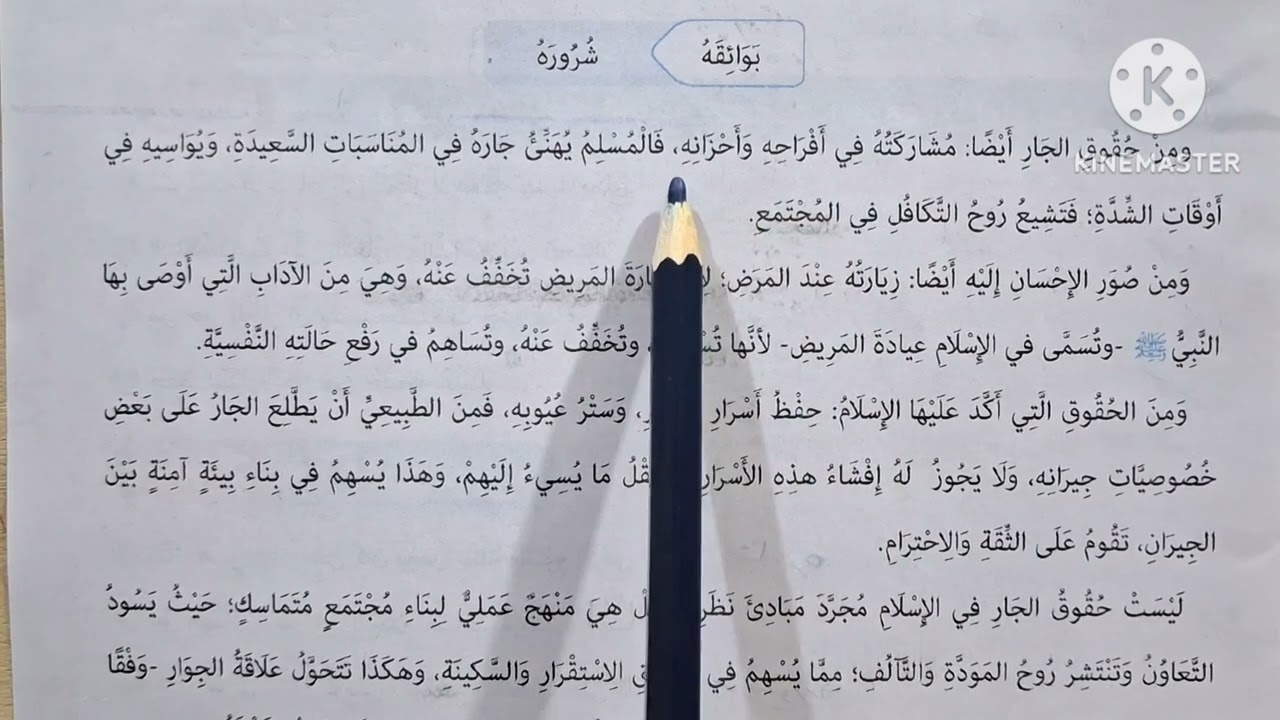 بَوَائِقَهُ شُرُورَهُ
KINEMASTER
وَمِنْ حُقُوقِ الجَارِ أَيْضًا: مُشَارَكَتُهُ فِي أَفْرَاحِهِ وَأَحْزَانِهِ، فَالْمُسْلِمُ يُهَنِّئُ جَارَهُ فِي المُنَاسَبَاتِ السَّعِيدَةِ، وَيُوَاسِيهِ فِي
أَوْقَاتِ الشِّدَّةِ؛ فَتَشِيعُ رُوحُ التَّكَافُلِ فِي المُجْتَمَعِ.
وَمِنْ صُوَرِ الإِحْسَانِ إِلَيْهِ أَيْضًا: زِيَارَتُهُ عِنْدَ المَرَضِ؛ المَرِيضِ تُخَفِّفُ عَنْهُ، وَهِيَ مِنَ الآدَابِ الَّتِي أَوْصَى بِهَا
النَّبِيُّ ﷺ -وتُسَمَّى في الإِسْلَامِ عِيادَةَ المَرِيضِ- لأنَّها وتُخَفِّفُ عَنْهُ، وتُساهِمُ في رَفْعِ حَالَتِهِ النَّفْسِيَّةِ.
وَمِنَ الحُقُوقِ الَّتِي أَكَّدَ عَلَيْهَا الإِسْلَامُ: حِفْظُ أَسْرَارِ وَسَتْرُ عُيُوبِهِ، فَمِنَ الطَّبِيعِيِّ أَنْ يَطَّلِعَ الجَارُ عَلَى بَعْضِ
خُصُوصِيَّاتِ جِيرَانِهِ، وَلَا يَجُوزُ لَهُ إِفْشَاءُ هذِهِ الأَسْرَارِ مَا يُسِيءُ إِلَيْهِمْ، وَهَذَا يُسْهِمُ فِي بِنَاءِ بِيئَةٍ آمِنَةٍ بَيْنَ
الجِيرَانِ، تَقُومُ عَلَى الثِّقَةِ وَالِاحْتِرَامِ.
لَيْسَتْ حُقُوقُ الجَارِ فِي الإِسْلَامِ مُجَرَّدَ مَبَادِئَ هِيَ مَنْهَجٌ عَمَلِيٌّ لِبِنَاءِ مُجْتَمَعٍ مُتَمَاسِكٍ؛ حَيْثُ يَسُودُ
التَّعَاوُنُ وَتَنْتَشِرُ رُوحُ المَوَدَّةِ وَالتَّآلُفِ؛ مِمَّا يُسْهِمُ فِي الِاسْتِقْرَارِ وَالسَّكِينَةِ، وَهَكَذَا تَتَحَوَّلُ عَلَاقَةُ الجِوَارِ -وَفْقًا